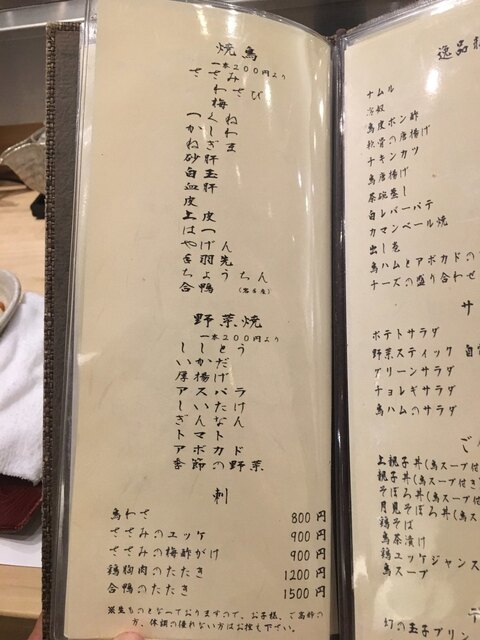 焼鳥
一本200円より
ささみ
わさび
梅
つくね
かしわ
ねぎま
砂肝
白玉
血肝
皮
上皮
はつ
やげん
手羽先
ちょうちん
合鴨
野菜焼
一本200円より
ししとう
いかだ
厚揚げ
アスパラ
しいたけ
ぎんなん
トマト
アボカド
季節の野菜
刺
鳥わさ 800円
ささみのユッケ 900円
ささみの梅酢がけ 900円
鶏胸肉のたたき 1200円
合鴨のたたき 1500円
派生ものとなっておりますので、お子様、ご高齢の
方、体調の優れない方はお控え下さい。
逸品
ナムル
冷奴
鳥皮ポン酢
軟骨の唐揚げ
チキンカツ
鳥唐揚げ
茶碗蒸し
白レバーパテ
カマンベール焼
出し巻
鳥ハムとアボカドの
チーズの盛り合わせ
サ
ポテトサラダ
野菜スティック
グリーンサラダ
チョレギサラダ
鳥ハムのサラダ
ご
上親子丼(鳥スープ付き
親子丼(鳥スープ付き)
そぼろ丼(鳥スープ
月見そぼろ丼(鳥ス
鶏そば
鳥茶漬け
鶏ユッケジャンス
鳥スープ
デ
幻の玉子プリン